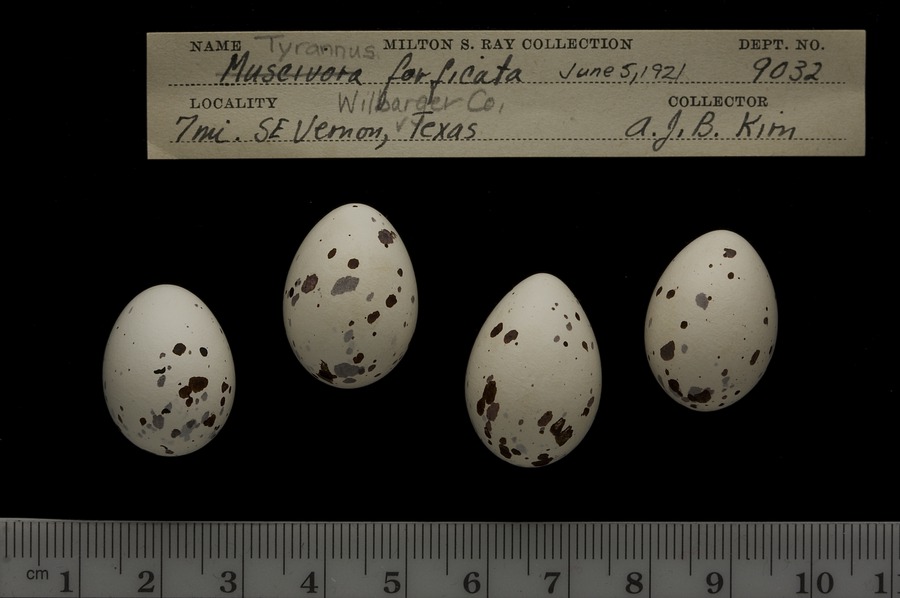 NAME Tyrannus MILTON S. RAY COLLECTION DEPT. NO.
Muscivora forficata June 5, 1921 9032
LOCALITY Wilbarger Co, COLLECTOR
7mi. SE Vernon, Texas A. J. B. Kirn
cm 1 2 3 4 5 6 7 8 9 10 1